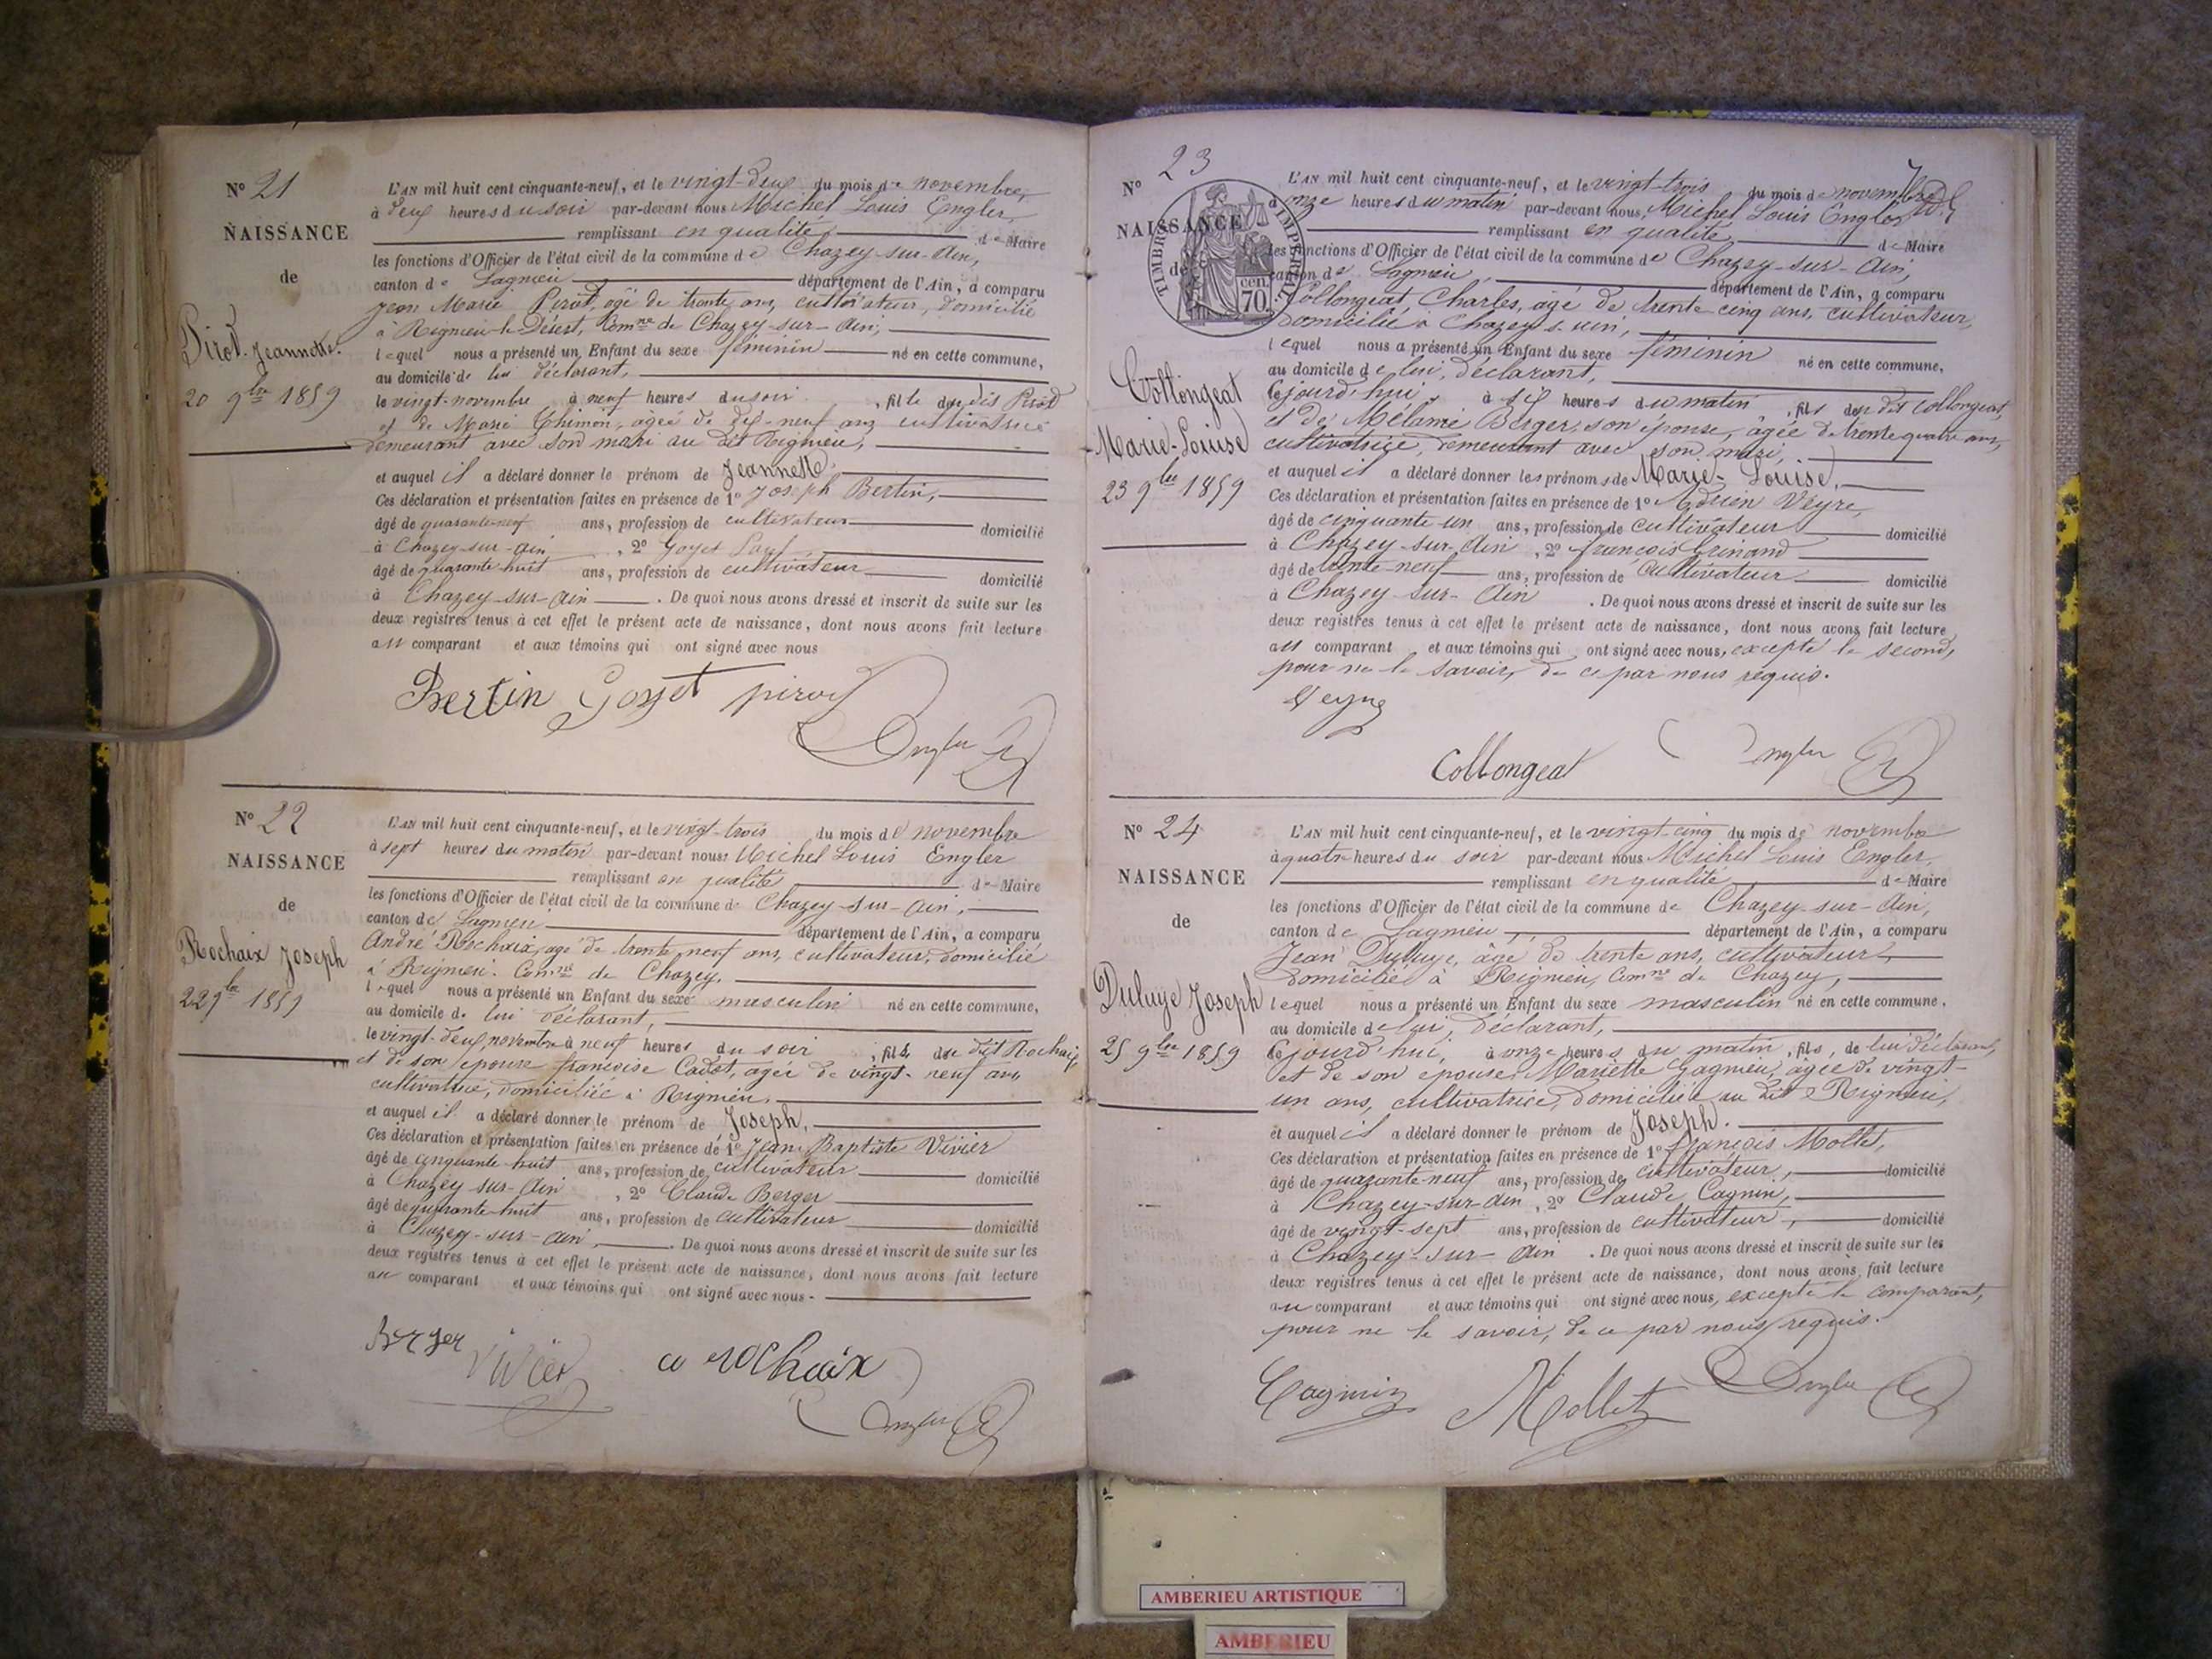 N° 21
NAISSANCE
de
Pirod Jeannette.
20 9bre 1859
L'AN mil huit cent cinquante-neuf, et le vingt-deux du mois de novembre,
à deux heures du soir par-devant nous Michel Louis Engler,
remplissant en qualité de Maire
les fonctions d'Officier de l'état civil de la commune de Chazey-sur-Ain,
canton de Lagnieu département de l'Ain, a comparu
Jean Marie Pirod, agé de trente ans, cultivateur, domicilié
à Rignieu-le-Désert, Comne de Chazey-sur-Ain,
lequel nous a présenté un Enfant du sexe féminin né en cette commune,
au domicile de lui déclarant,
le vingt-novembre à neuf heures du soir, fille du dit Pirod
et de Marie Thimon, agée de dix-neuf ans cultivatrice
demeurant avec son mari au dit Rignieu,
et auquel il a déclaré donner le prénom de Jeannette.
Ces déclaration et présentation faites en présence de 1° Joseph Bertin,
âgé de quarante-neuf ans, profession de cultivateur domicilié
à Chazey-sur-Ain, 2° Goyet Paul
âgé de quarante-huit ans, profession de cultivateur domicilié
à Chazey-sur-Ain. De quoi nous avons dressé et inscrit de suite sur les
deux registres tenus à cet effet le présent acte de naissance, dont nous avons fait lecture
au comparant et aux témoins qui ont signé avec nous
Bertin Goyet pirod
Engler
N° 22
NAISSANCE
de
Rochaix Joseph
22 9bre 1859
L'AN mil huit cent cinquante-neuf, et le vingt-trois du mois de novembre
à sept heures du matin par-devant nous Michel Louis Engler
remplissant en qualité de Maire
les fonctions d'Officier de l'état civil de la commune de Chazey-sur-Ain,
canton de Lagnieu département de l'Ain, a comparu
André Rochaix, agé de trente neuf ans, cultivateur, domicilié
à Rignieu. Comne de Chazey,
lequel nous a présenté un Enfant du sexe masculin né en cette commune,
au domicile de lui déclarant,
le vingt-deux novembre à neuf heures du soir, fils du dit Rochaix,
et de son épouse françoise Cadot, agée de vingt-neuf ans
cultivatrice, domiciliée à Rignieu,
et auquel il a déclaré donner le prénom de Joseph,
Ces déclaration et présentation faites en présence de 1° Jean Baptiste Vivier
âgé de cinquante huit ans, profession de cultivateur domicilié
à Chazey-sur-Ain, 2° Claude Berger
âgé de quarante-huit ans, profession de cultivateur domicilié
à Chazey-sur-Ain. De quoi nous avons dressé et inscrit de suite sur les
deux registres tenus à cet effet le présent acte de naissance, dont nous avons fait lecture
au comparant et aux témoins qui ont signé avec nous -
Berger Vivier a rochaix
Engler
N° 23
NAISSANCE
de
TIMBRE IMPÉRIAL
cen.
70
Collongeat
Marie-Louise
23 9bre 1859
L'AN mil huit cent cinquante-neuf, et le vingt-trois du mois de novembre
à onze heures du matin par-devant nous, Michel Louis Engler
remplissant en qualité de Maire
les fonctions d'Officier de l'état civil de la commune de Chazey-sur-Ain,
canton de Lagnieu, département de l'Ain, a comparu
Collongeat Charles, agé de trente-cinq ans, cultivateur,
domicilié à Chazey s. ain,
lequel nous a présenté un Enfant du sexe féminin né en cette commune,
au domicile de lui, déclarant,
Cejourd'hui, à six heures du matin, fils du dit Collongeat,
et de Mélanie Berger, son épouse, agée de trente quatre ans,
cultivatrice, demeurant avec son mari,
et auquel il a déclaré donner les prénoms de Marie-Louise,
Ces déclaration et présentation faites en présence de 1° Adrien Veyre,
âgé de cinquante-un ans, profession de cultivateur domicilié
à Chazey-sur-Ain, 2° françois
âgé de trente-neuf ans, profession de cultivateur domicilié
à Chazey-sur-Ain. De quoi nous avons dressé et inscrit de suite sur les
deux registres tenus à cet effet le présent acte de naissance, dont nous avons fait lecture
au comparant et aux témoins qui ont signé avec nous, excepté le second,
pour ne le savoir, de ce par nous requis.
Veyre
Collongeat Engler
N° 24
NAISSANCE
de
Duluye Joseph
25 9bre 1859
L'AN mil huit cent cinquante-neuf, et le vingt-cinq du mois de novembre
à quatre heures du soir par-devant nous Michel Louis Engler,
remplissant en qualité de Maire
les fonctions d'Officier de l'état civil de la commune de Chazey-sur-Ain,
canton de Lagnieu, département de l'Ain, a comparu
Jean Duluye, âgé de trente ans, cultivateur,
domicilié à Rignieu, Comne de Chazey,
lequel nous a présenté un Enfant du sexe masculin né en cette commune,
au domicile de lui, déclarant,
Cejourd'hui, à onze heures du matin, fils, de lui déclarant,
et de son épouse Mariette Gagnieu, agée de vingt-
un ans, cultivatrice, domiciliée au dit Rignieu,
et auquel il a déclaré donner le prénom de Joseph.
Ces déclaration et présentation faites en présence de 1° françois Mollet,
âgé de quarante-neuf ans, profession de cultivateur, domicilié
à Chazey-sur-Ain, 2° Claude Cagnin,
âgé de vingt-sept ans, profession de cultivateur, domicilié
à Chazey-sur-Ain. De quoi nous avons dressé et inscrit de suite sur les
deux registres tenus à cet effet le présent acte de naissance, dont nous avons fait lecture
au comparant et aux témoins qui ont signé avec nous, excepté le comparant,
pour ne le savoir, de ce par nous requis.
Cagnin Mollet Engler
AMBERIEU ARTISTIQUE
AMBERIEU